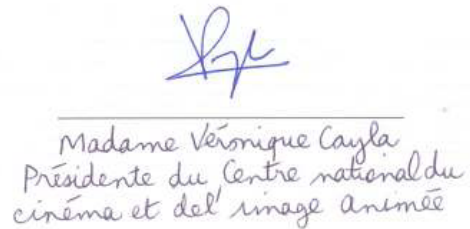 Madame Véronique Cayla
Présidente du Centre national du
cinéma et de l'image animée